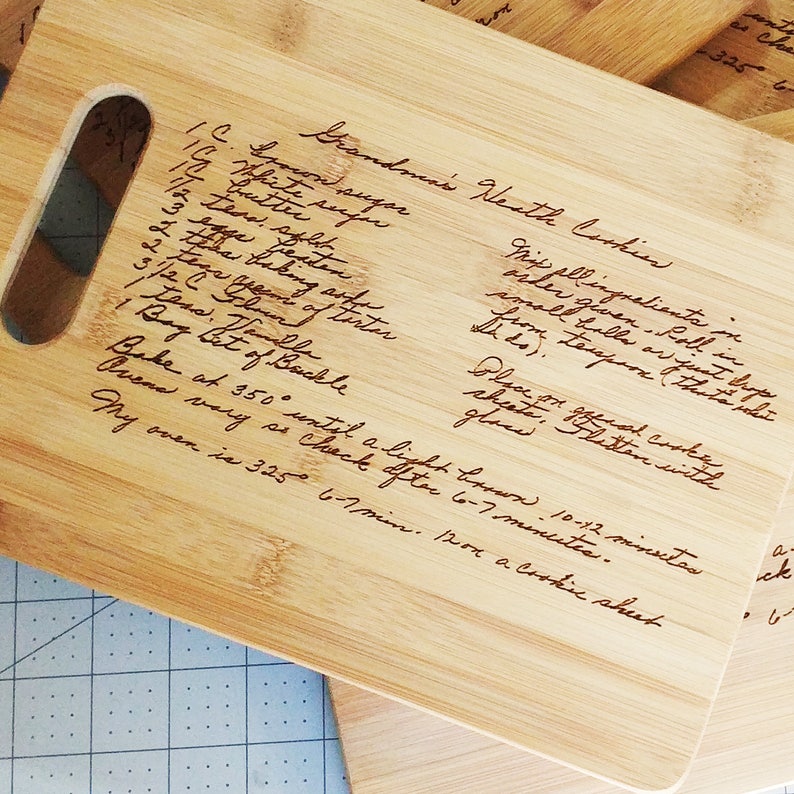 Grandma's Heath Cookies
1 C. brown sugar
1 C. white sugar
1 C butter
1/2 teas. salt
3 eggs beaten
2 teas baking soda
2 teas cream of tartar
3 1/2 C Flour
1 teas. Vanilla
1 Bag Bit of Brickle
Bake at 350° until a light brown 10-12 minutes
Ovens vary so check after 6-7 minutes.
My oven is 325° 6-7 min. 12 on a cookie sheet
Mix all ingredients in
order given. Roll in
small balls or just drop
from teaspoon (thats what
I do).
Place on greased cookie
sheets. Flatten with
glass